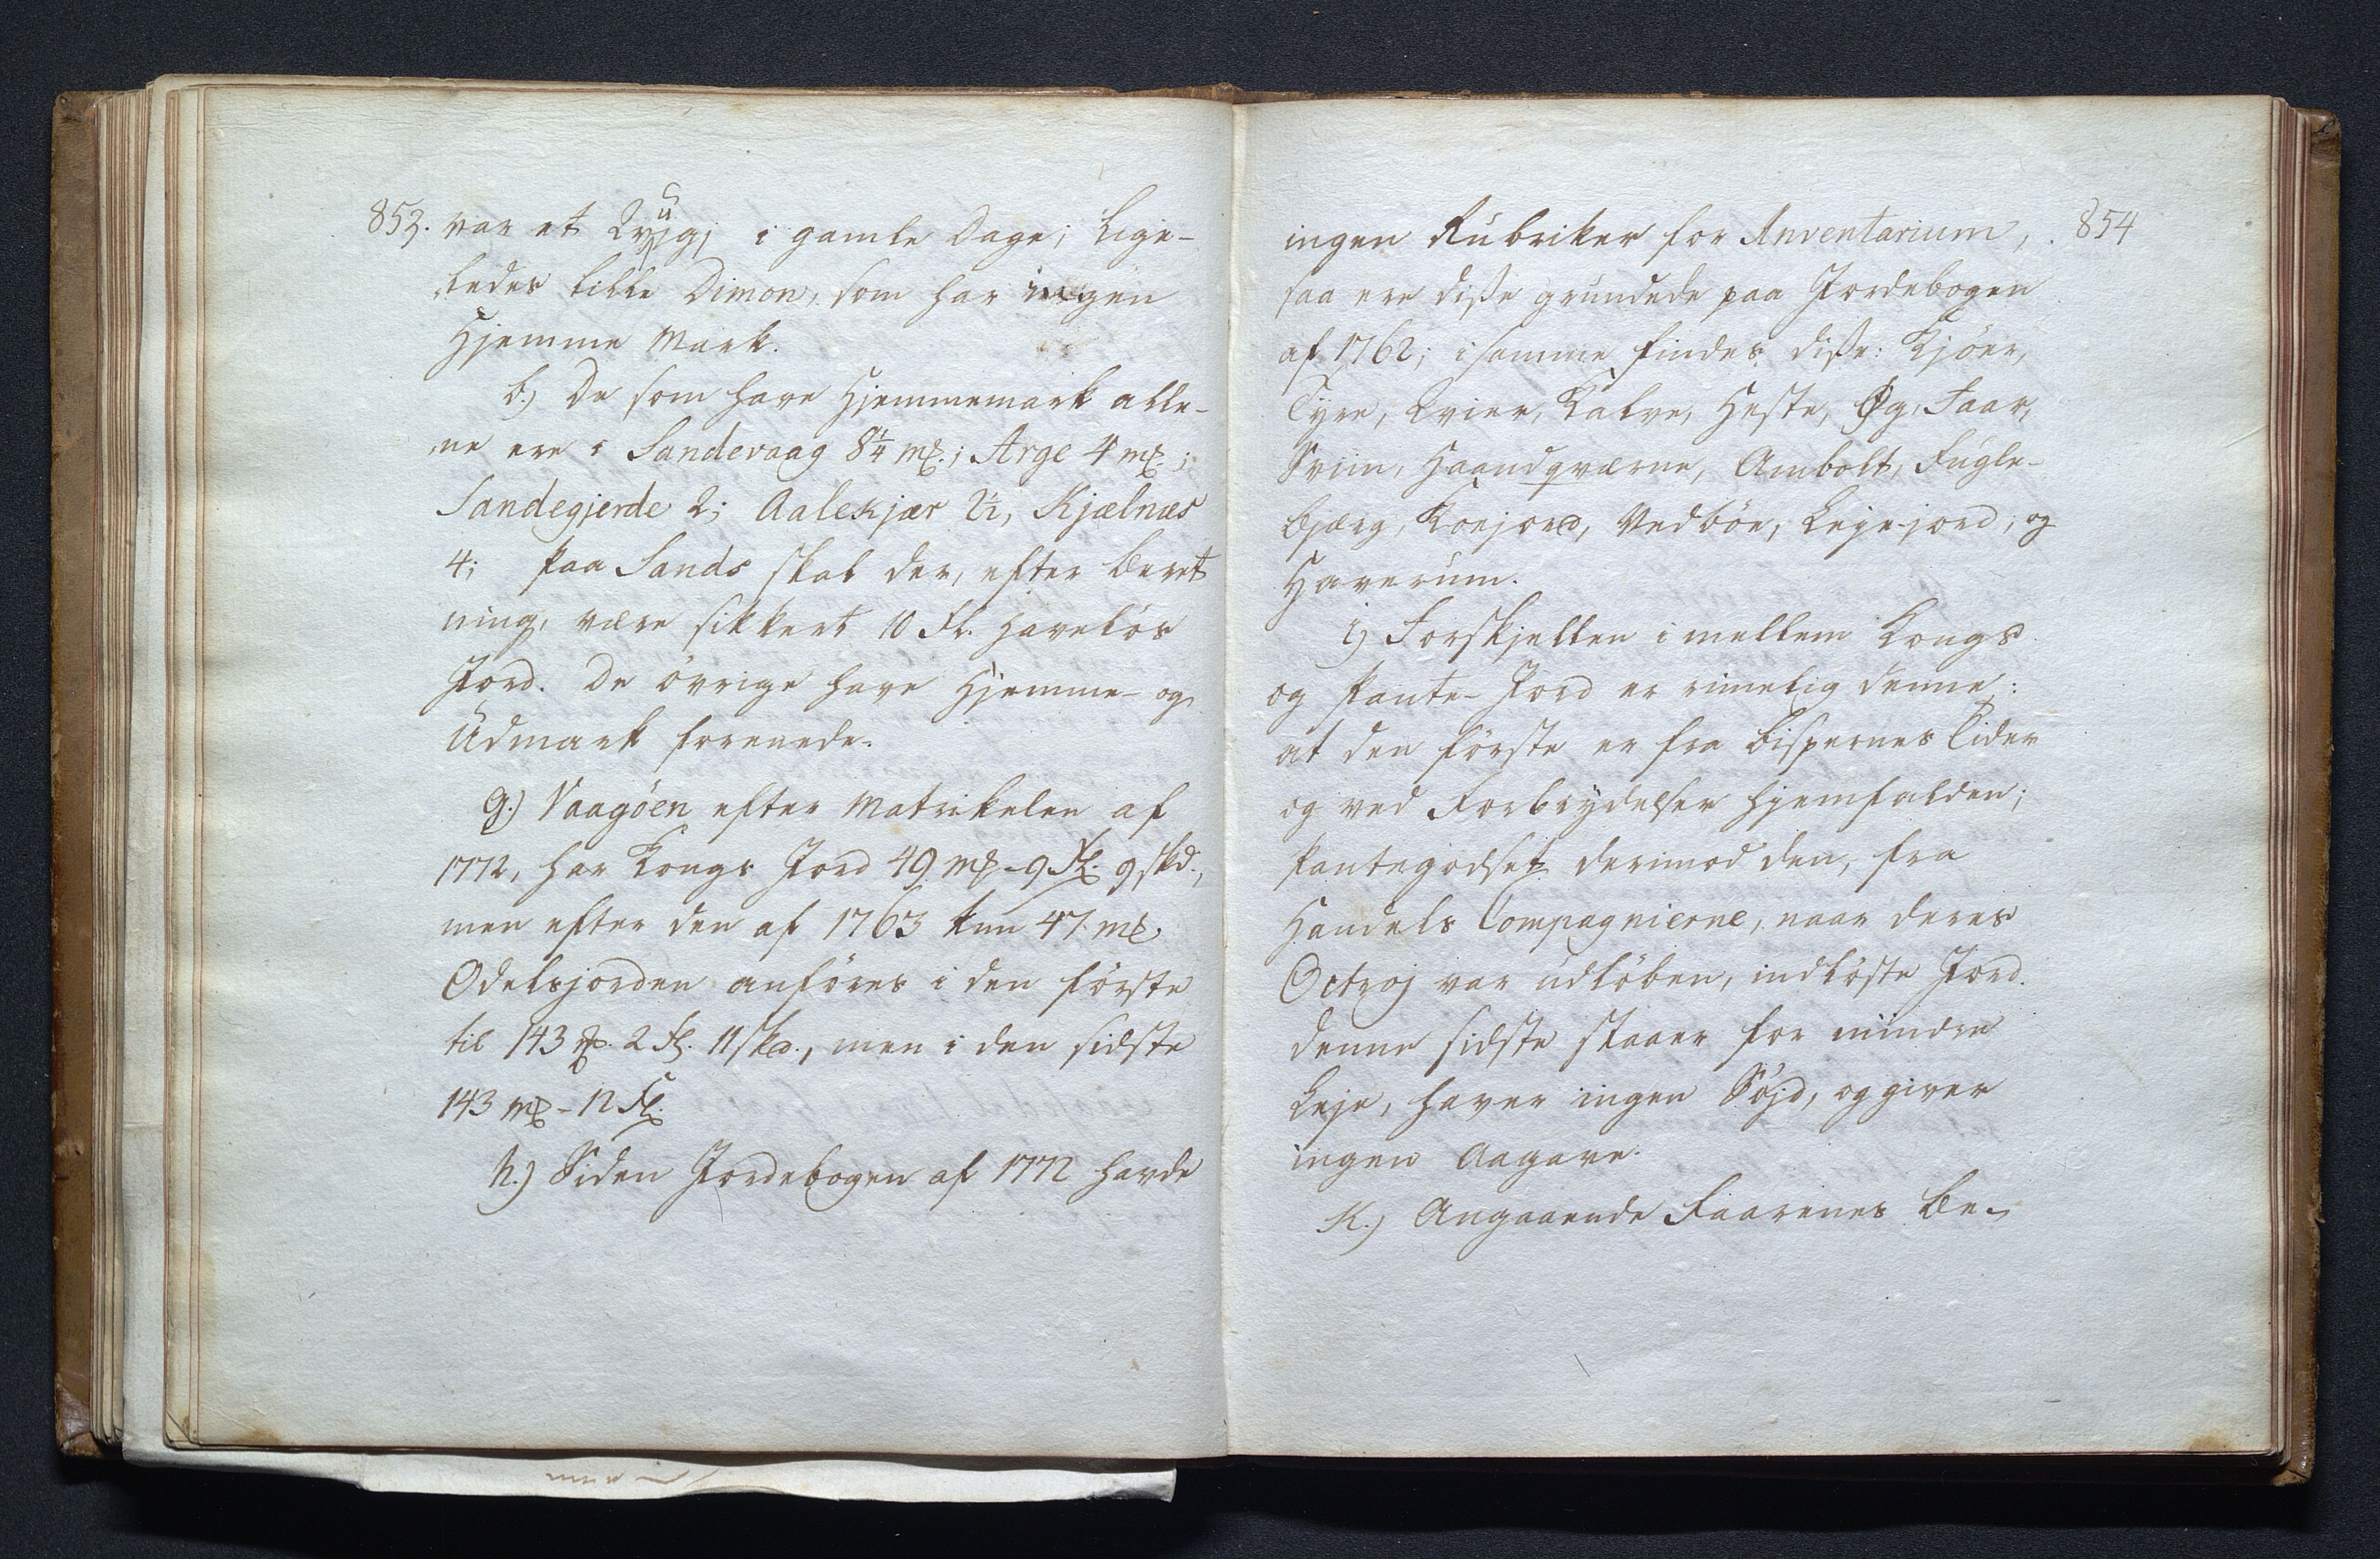 853. var et i gamle Dage; Lige-
ledes lille Dimon, som har ingen
Hjemme Mark.
b.) De som have Hjemmemark alle-
ne ere i Sandevaag 8¼ mk.; Arge 4 mk;
Sandegjerde 2; Aalekjær 2½, Kjælnæs
4; paa Sands skal der, efter Beret
ning, være sikkert 10 Fl. haveløs
Jord. De övrige have Hjemme- og
Udmark forenede.
g.) Vaagöen efter Matrikelen af
1772, har Kongs Jord 49 mk - 9 Fl. 9 skd.,
men efter den af 1763 kun 47 mk.
Odelsjorden anföres i den förste
til 143 mk. 2 Fl. 11 skd., men i den sidste
143 mk - 12 Fl.
h.) Siden Jordebogen af 1772 havde
ingen Rubriker for Inventarium, . 854
saa ere disse grundede paa Jordebogen
af 1762; i samme findes disse: Kjöer,
Tyre, Qvier, Kalve, Heste, Øg, Faar,
Sviin, Haandqværne, Ambolt, Fugle-
bjærg, Koejord, Vedböe, Leje-jord, og
Haverum.
i) Forskjellen imellem Kongs
og Pante-Jord er rimelig denne:
at den förste er fra Bispernes Tider
og ved Forbrydelser hjemfalden;
Pantegodset derimod den, fra
Handels Compagnierne, naar deres
Octroj var udlöben, indlöste Jord.
Denne sidste staaer for mindre
Leje, haver ingen Söjd, og giver
ingen Aagave.
K.) Angaaende Faarenes Be-